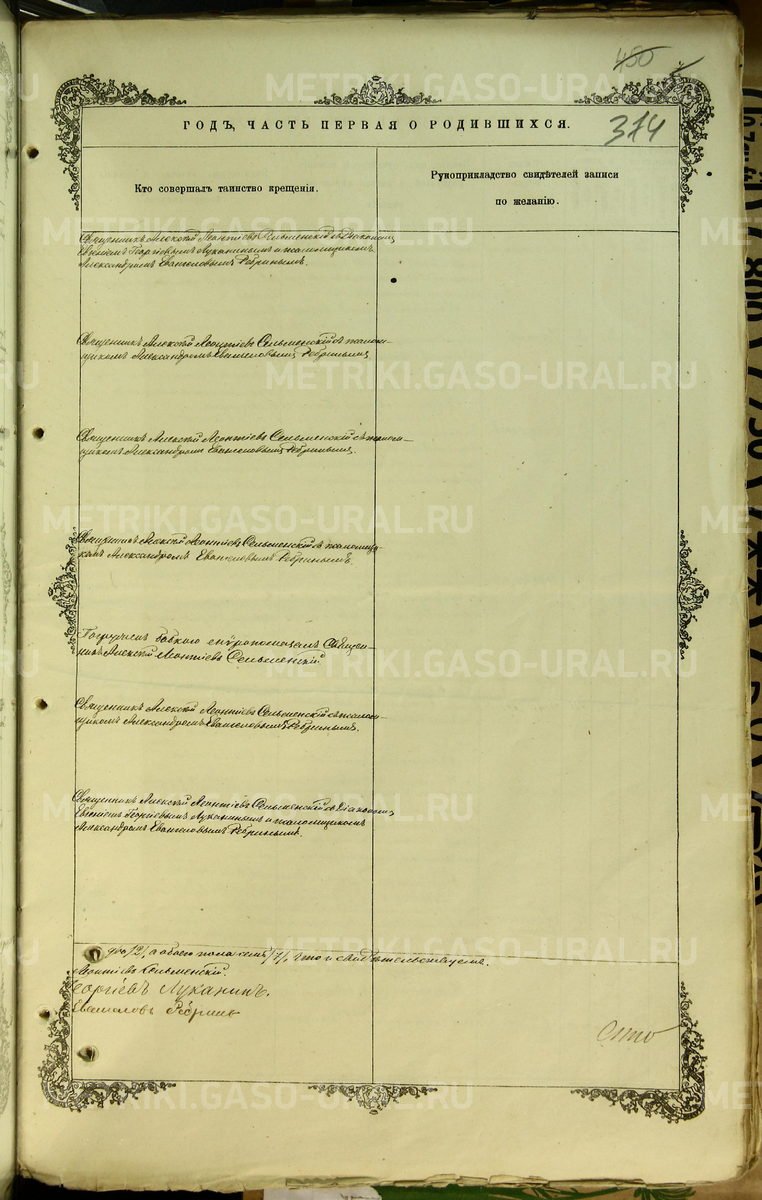 450
374
ГОДЪ, ЧАСТЬ ПЕРВАЯ О РОДИВШИХСЯ.
Кто совершалъ таинство крещенія.
Рукоприкладство свидѣтелей записи
по желанію.
Священникъ Алексѣй Леонтіевъ Сельменскій съ Діакономъ
Евгеніемъ Георгіевымъ Луканинымъ и псаломщикомъ
Александромъ Евангеловымъ Ребринымъ.
Священникъ Алексѣй Леонтіевъ Сельменскій съ псалом-
щикомъ Александромъ Евангеловымъ Ребринымъ
Священникъ Алексѣй Леонтіевъ Сельменскій съ псалом-
щикомъ Александромъ Евангеловымъ Ребринымъ.
Священникъ Алексѣй Леонтіевъ Сельменскій съ псаломщи-
комъ Александромъ Евангеловымъ Ребринымъ.
Священ-
никъ Алексѣй Леонтіевъ Сельменскій
Священникъ Алексѣй Леонтіевъ Сельменскій съ псалом-
щикомъ Александромъ Евангеловымъ Ребринымъ.
Священникъ Алексѣй Леонтіевъ Сельменскій съ Діакономъ
Евгеніемъ Георгіевымъ Луканинымъ и псаломщикомъ
Александромъ Евангеловымъ Ребринымъ.
два /2/, а обоего пола семь /7/, что и свидѣтельствуемъ.
Леонтіевъ Сельменскій.
Георгіевъ Луканинъ.
Евангеловъ Ребринъ
METRIKI.GASO-URAL.RU